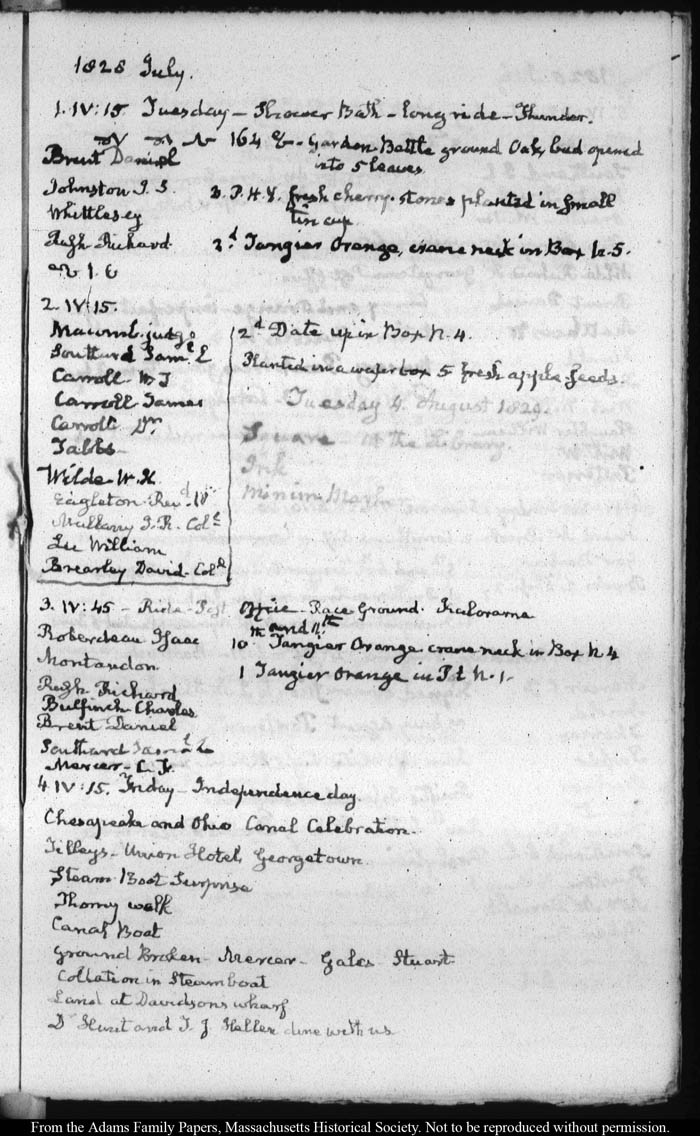 1828 July.
1. IV: 15. Tuesday - Shower Bath - long ride - Thunder.
164 &- Garden. Battle ground Oak, bud opened
into 5 leaves.
Brent Daniel
Johnston J. S.
Whittlesey
Rush Richard
B. P. H. Y. fresh cherry-stones planted in small
tin cup.
2d Tangier Orange, crane neck in Box N. 5.
2. IV: 15.
Macomb
Southard Saml L
Carroll W T
Carroll James
Carroll Dr
Tabbs
Wilde R. H.
Eagleton Revd W
Mullany J. R. Coll
Lee William
Brearley David Coll
2d Date up in Box N. 4.
Planted in a wafer box 5 fresh apple-seeds.
Tuesday 4. August 1829.
Square in the Library.
Ink
3. IV: 45 - Ride - Post Office - Race Ground. Kalorama
Roberdeau Isaac
Montandon
Rush Richard
Bulfinch Charles
Brent Daniel
Southard Saml L
Mercer C. F.
10th and 11th Tangier Orange crane neck in Box N 4
1 Tangier Orange in Pot N. 1.
4. IV: 15. Friday - Independence day.
Chesapeake and Ohio Canal Celebration.
Tilleys - Union Hotel, Georgetown
Steam Boat Surprise
Thorny walk
Canal Boat
Ground Broken - Mercer - Gales - Stuart
Collation in Steamboat
Land at Davidsons wharf
Dr Hunt and T. J. Hellen dine with us
From the Adams Family Papers, Massachusetts Historical Society. Not to be reproduced without permission.